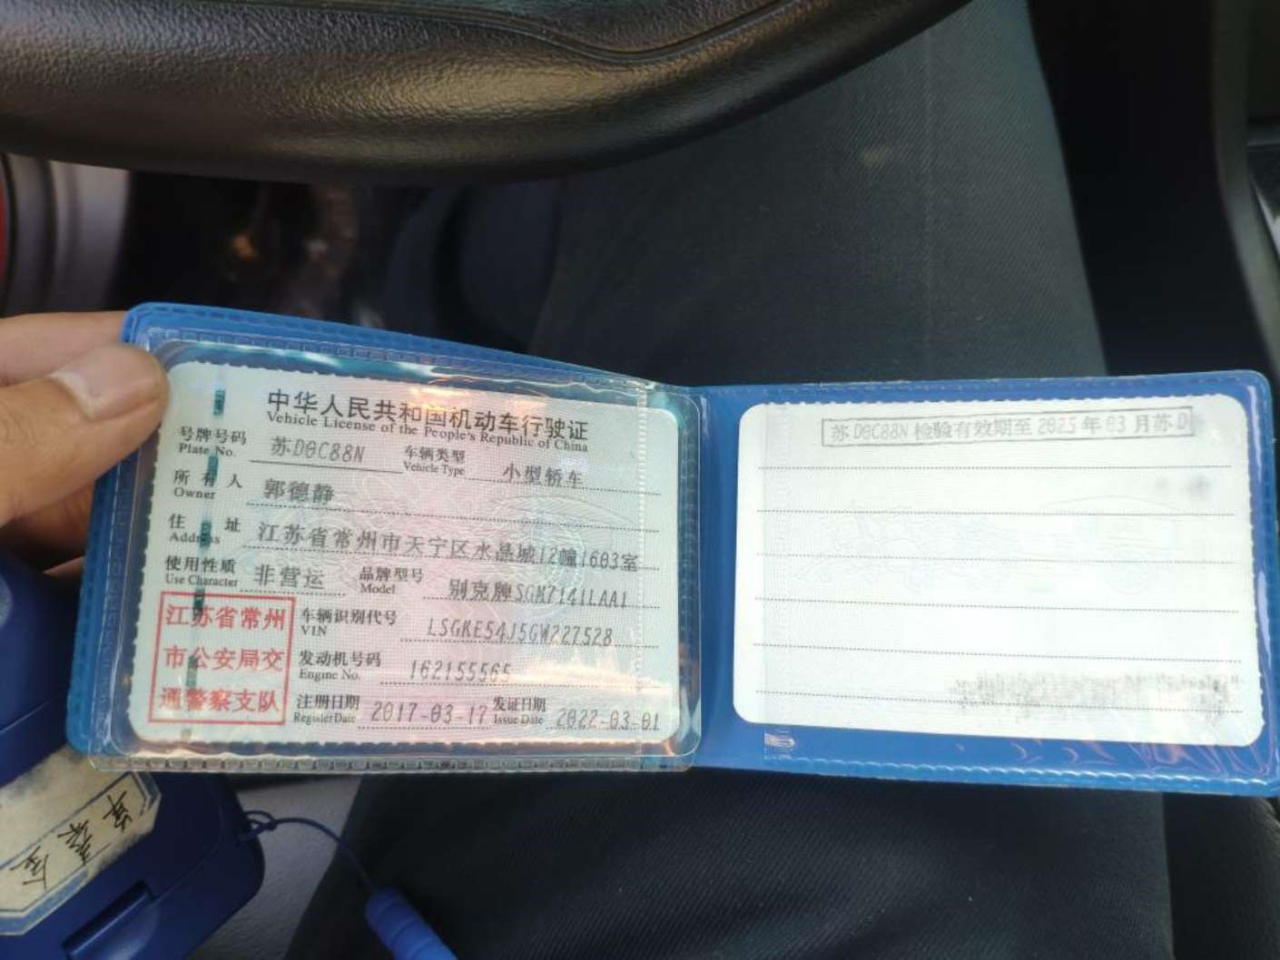 中华人民共和国机动车行驶证
Vehicle License of the People's Republic of China
号牌号码 苏D0C88N 车辆类型 小型轿车
Plate No. Vehicle Type
所有人 郭德静
Owner
住址 江苏省常州市天宁区水晶城12幢1603室
Address
使用性质 非营运 品牌型号 别克牌SGM7141LAA1
Use Character Model
江苏省常州
市公安局交
通警察支队
车辆识别代号 LSGKE54J5GW227528
VIN
发动机号码 162155565
Engine No.
注册日期 2017-03-17 发证日期 2022-03-01
Register Date Issue Date
苏D0C88N 检验有效期至 2023 年 03 月 苏D